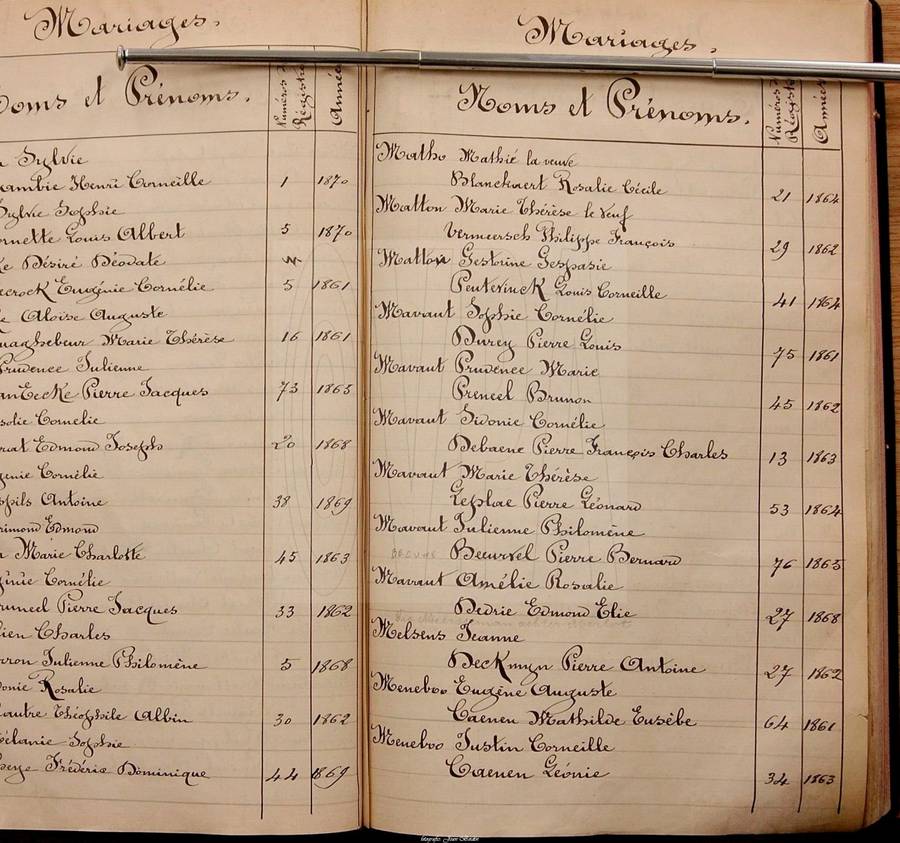 Mariages.
Noms et Prénoms.
Numéros
Régistre
Année
Sylvie
Henri Corneille 1 1870
Sylvie Sophie
Louis Albert 5 1870
Désiré Déodate
Eugénie Cornélie 5 1861
Aloïse Auguste
Marie Thérèse 16 1861
Prudence Julienne
Pierre Jacques 73 1865
Cornelie
Edmond Joseph 20 1868
Cornélie
Antoine 38 1869
Edmond
Marie Charlotte 45 1863
Cornélie
Pierre Jacques 33 1862
Charles
Julienne Philomène 5 1868
Rosalie
Théophile Albin 30 1862
Mélanie Sophie
Frédéric Dominique 44 1869
Mariages.
Noms et Prénoms.
Numéros
Régistre
Année
Matho Mathié la veuve
Blanckaert Rosalie Cécile 21 1864
Matton Marie Thérèse le veuf
Vermeersch Philippe François 29 1862
Matton
Louis Corneille 41 1864
Mavaut Sophie Cornélie
Durey Pierre Louis 75 1861
Mavaut Prudence Marie
Preneel Brunon 45 1862
Mavaut Sidonie Cornélie
Debaene Pierre François Charles 13 1863
Mavaut Marie Thérèse
Leplae Pierre Léonard 53 1864
Mavaut Julienne Philomène
Pierre Bernard 76 1865
Mavaut Amélie Rosalie
Dedrie Edmond Elie 27 1868
Melsens Jeanne
Deckmyn Pierre Antoine 27 1862
Meneboo Eugène Auguste
Caenen Mathilde Eusèbe 64 1861
Meneboo Justin Corneille
Caenen Léonie 34 1863